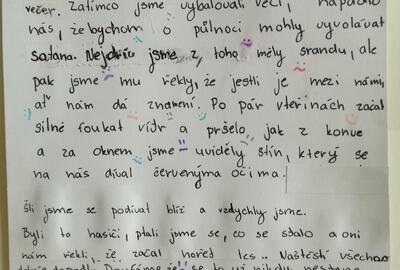 večer. Zatímco jsme vybalovali věci, napadlo
nás, že bychom o půlnoci mohly vyvolávat
satana. Nejdřív jsme z toho měly srandu, ale
pak jsme mu řekly, že jestli je mezi námi,
ať nám dá znamení. Po pár vteřinách začal
silně foukat vítr a pršelo jak z konve
a za oknem jsme uviděly stín, který se
na nás díval červenýma očima.
šli jsme se podívat blíž a vzdychly jsme.
Byli to hasiči, ptali jsme se, co se stalo a oni
nám řekli, že začal hořet les.. Naštěstí všechno
se to už nikdy